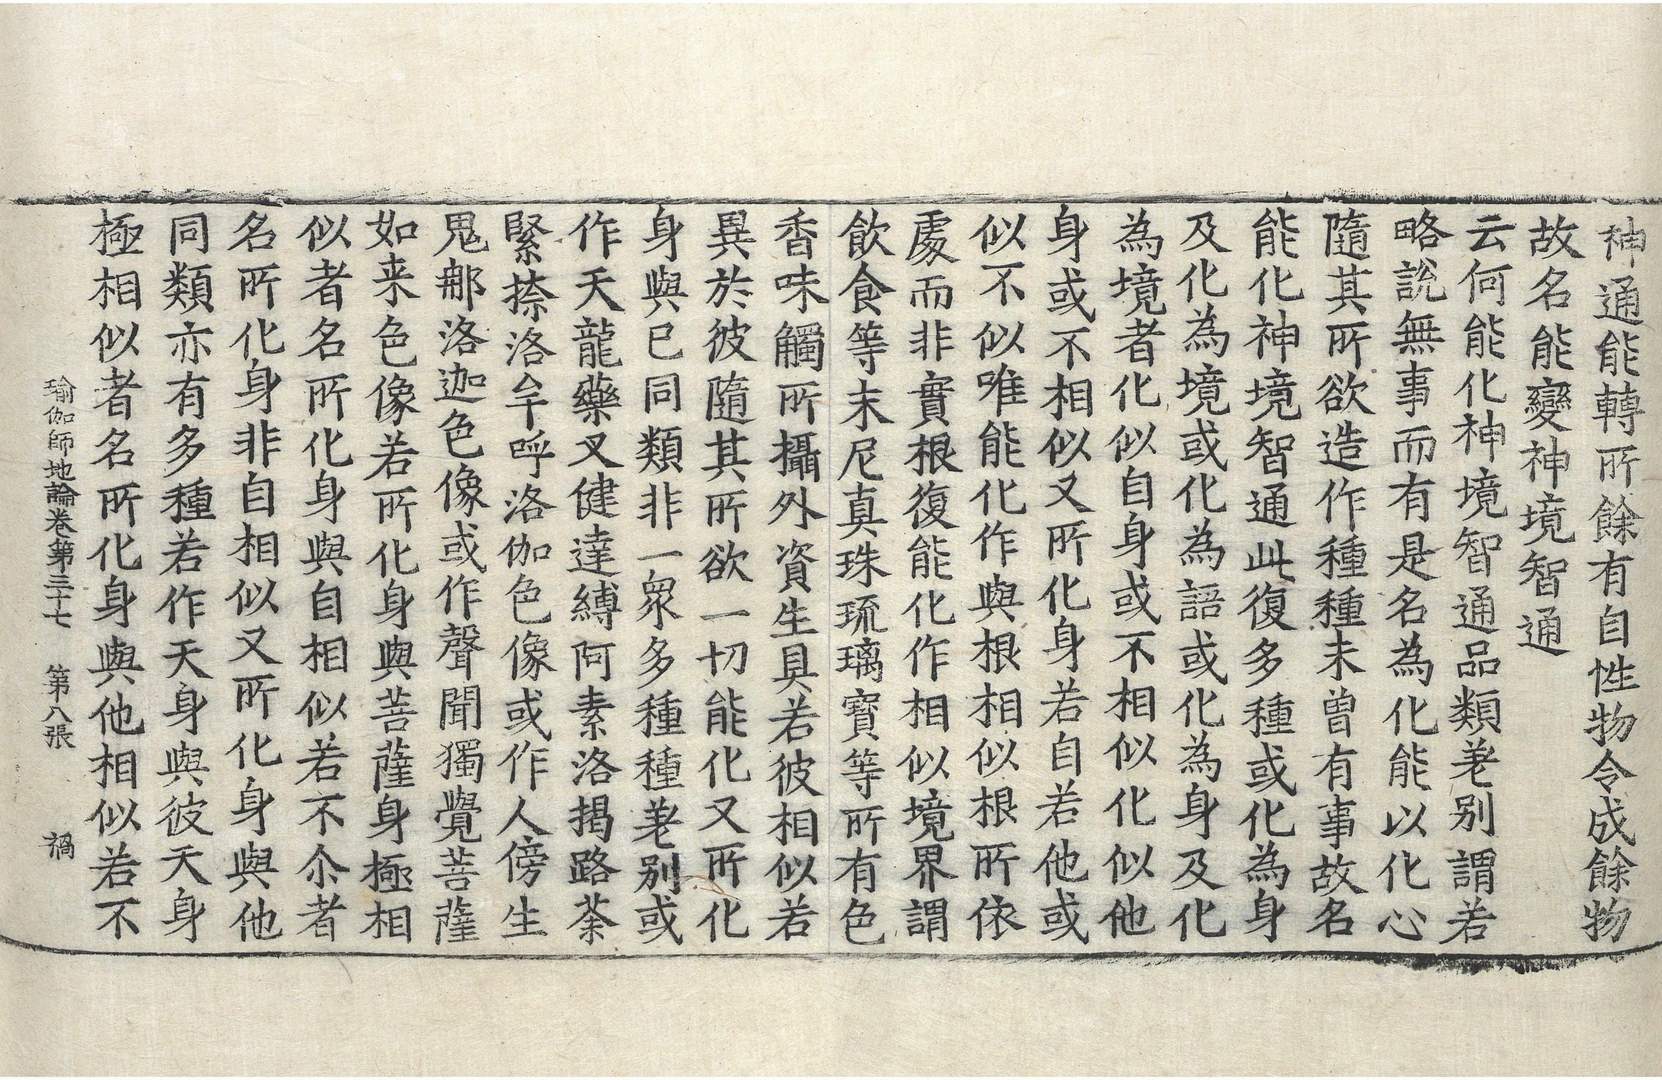 神通能轉所餘有自性物令成餘物
故名能變神境智通
云何能化神境智通品類差别謂若
略說無事而有是名為化能以化心
隨其所欲造作種種未曾有事故名
能化神境智通此復多種或化為身
及化為境或化為語或化為身及化
為境者化似自身或不相似化似他
身或不相似又所化身若自若他或
似不似唯能化作與根相似根所依
處而非實根復能化作相似境界謂
飲食等末尼真珠琉璃寶等所有色
香味觸所攝外資生具若彼相似若
異於彼隨其所欲一切能化又所化
身與已同類非一衆多種種差别或
作天龍藥叉健達縛阿素洛揭路荼
緊捺洛牟呼洛伽色像或作人傍生
鬼郍洛迦色像或作聲聞獨覺菩薩
如来色像若所化身與菩薩身極相
似者名所化身與自相似若不尒者
名所化身非自相似又所化身與他
同類亦有多種若作天身與彼天身
極相似者名所化身與他相似若不
瑜伽師地論卷第三十七　第八張　禍